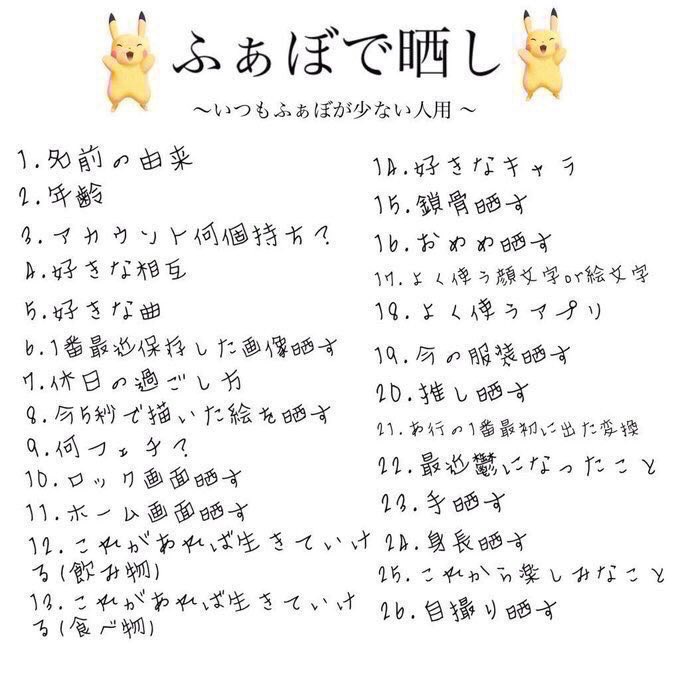 ふぁぼで晒し
〜いつもふぁぼが少ない人用〜
1.名前の由来
2.年齢
3.アカウント何個持ち?
4.好きな相互
5.好きな曲
6.1番最近保存した画像晒す
7.休日の過ごし方
8.今5秒で描いた絵を晒す
9.何フェチ?
10.ロック画面晒す
11.ホーム画面晒す
12.これがあれば生きていけ
る(飲み物)
13.これがあれば生きていけ
る(食べ物)
14.好きなキャラ
15.鎖骨晒す
16.おめめ晒す
17.よく使う顔文字or絵文字
18.よく使うアプリ
19.今の服装晒す
20.推し晒す
21.あ行の1番最初に出た変換
22.最近鬱になったこと
23.手晒す
24.身長晒す
25.これから楽しみなこと
26.自撮り晒す